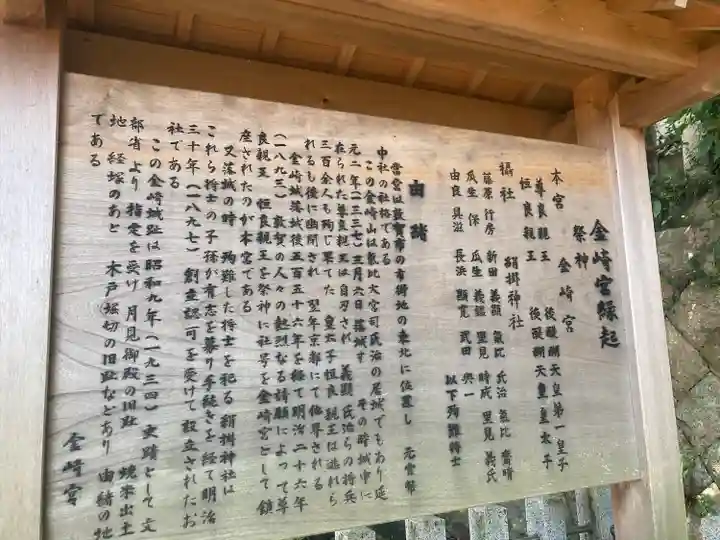 金崎宮縁起
祭神
本宮 金崎宮
尊良親王 後醍醐天皇第一皇子
恒良親王 後醍醐天皇皇太子
摂社 絹掛神社
藤原行房 新田義顕 氣比氏治 氣比齋晴
瓜生保 瓜生義鑑 里見時成 里見義氏
由良具滋 長浜顕寛 武田與一
以下殉難将士
由緒
当宮は敦賀市の市街地の東北に位置し 元官幣
中社の社格である
この金崎山は氣比大宮司氏治の居城でもあり延
元二年(一三三七)三月六日落城す その時城中に
在られた尊良親王は自刃され 義顕 氏治らの将兵
三百余人も殉じ果てた 皇太子恒良親王は逃れら
れるも後に幽閉され 翌年京都にて御薨される
金崎城落城後五百五十六年を経て明治二十六年
(一八九三)敦賀の人々の熱烈なる請願によって尊
良親王 恒良親王を祭神に社号を金崎宮として鎮
座されたのが本宮である
又落城の時 殉難した将士を祀る絹掛神社は
これら将士の子孫が有志を募り手続きを経て明治
三十年(一八九七) 創立認可を受けて設立されたお
社である
この金崎城趾は昭和九年(一九三四)史蹟として文
部省より指定を受け 月見御殿の旧趾 焼米出土
地 経塚のあと 木戸堀切の旧趾などあり 由緒の地
である
金崎宮